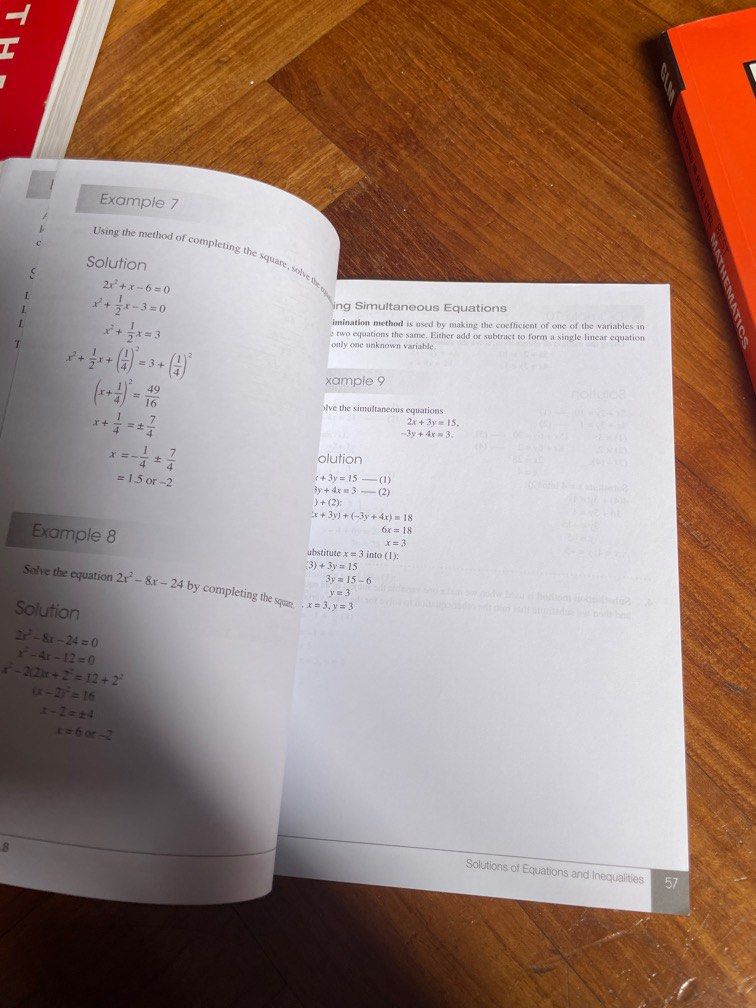 THE
GLM
MATHEMATICS
Example 7
Using the method of completing the square, solve the
Solution
2x² + x − 6 = 0
x² + 1/2 x − 3 = 0
x² + 1/2 x = 3
x² + 1/2 x + (1/4)² = 3 + (1/4)²
(x + 1/4)² = 49/16
x + 1/4 = ± 7/4
x = − 1/4 ± 7/4
= 1.5 or −2
Example 8
Solve the equation 2x² − 8x − 24 by completing the square.
Solution
2x² − 8x − 24 = 0
x² − 4x − 12 = 0
x² − 2(2)x + 2² = 12 + 2²
(x − 2)² = 16
x − 2 = ±4
x = 6 or −2
8
ing Simultaneous Equations
imination method is used by making the coefficient of one of the variables in
two equations the same. Either add or subtract to form a single linear equation
only one unknown variable.
xample 9
olve the simultaneous equations
2x + 3y = 15,
−3y + 4x = 3.
olution
+ 3y = 15 — (1)
3y + 4x = 3 — (2)
) + (2):
x + 3y) + (−3y + 4x) = 18
6x = 18
x = 3
ubstitute x = 3 into (1):
(3) + 3y = 15
3y = 15 − 6
y = 3
x = 3, y = 3
Solutions of Equations and Inequalities 57